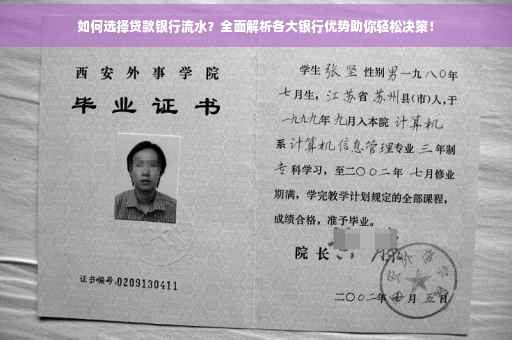 如何选择贷款银行流水？全面解析各大银行优势助你轻松决策！
西安外事学院
毕业证书
证书编号:0209130411
学生 张坚 性别 男 一九八〇年
七月生，江苏省 苏州 县(市)人，于
一九九九年 九月入本院 计算机
系 计算机信息管理 专业 三 年制
专 科学习，至二〇〇二年 七月修业
期满，学完教学计划规定的全部课程，
成绩合格，准予毕业。
院长
二〇〇二年 七月 五日